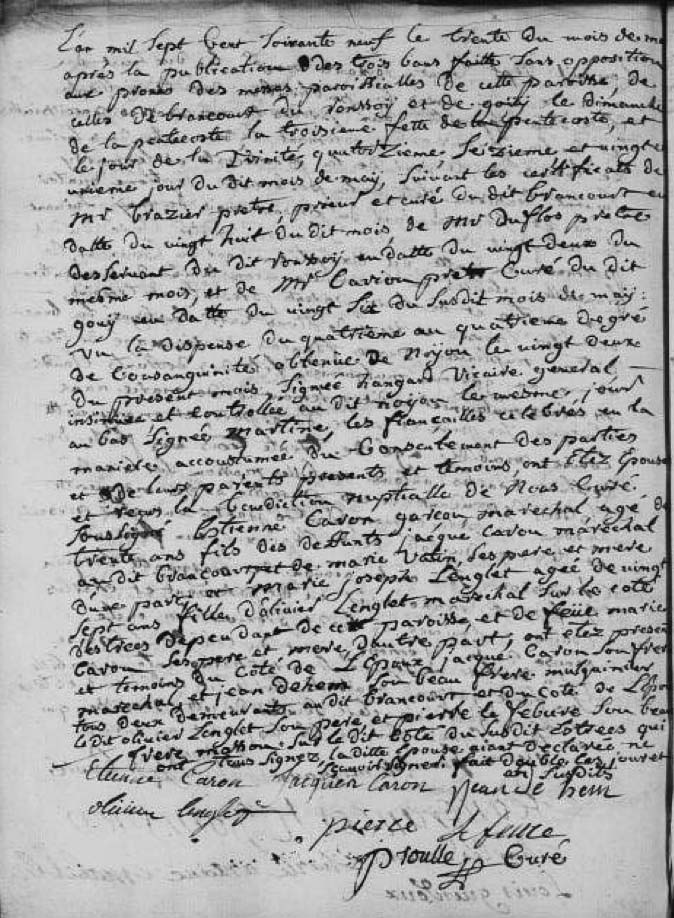 L'an mil Sept Cent Soixante neuf le trente du mois de may
après la publication des trois bans faitte Sans opposition
aux prones des messes paroissialles de cette paroisse, de
celles de brancourt du ronssoy et de gouy le dimanche
de la pentecoste la troisieme fette de la pentecoste, et
le jour de la Trinité, quatorzieme, Seizieme et vingt
unieme jour du dit mois de may, Suivant les certificats de
Mr brazier pretre, prieur et curé du dit brancourt en
datte du vingt huit du dit mois de Mr Duflos pretre
desservant du dit ronssoy en datte du vingt deux du
mesme mois, et de Mr Carion pretre Curé du dit
gouy en datte du vingt Six du Susdit mois de may:
Vu la dispense du quatrieme au quatrieme degré
de Consanguinité obtenue de Noyon le vingt deux
du present mois, Signée hangard Vicaire general
insinuée et Controllée au dit noyon le mesme jour
au bas Signée martine, les fiancailles celebrés en la
maniere accoustumée du Consentement des parties
et de leurs parents presents et temoins, ont etez Epousé
et reçus la benediction nuptialle de Nous Curé
Soussigné Estienne Caron garçon marechal agé de
trente ans fils des deffunts jacque Caron maréchal
au dit brancourt et de marie Vatin, Ses pere et mere
d'une part, et marie joseph Lenglet agée de vingt
Sept ans fille d'olivier Lenglet marechal Sur le coté
des trees dependant de cette paroisse, et de feüe marie
Caron Ses pere et mere d'autre part, ont etez present
et temoins du Coté de L'Epoux jacque Caron Son frere
marechal et jean dehem Son beau frere mulquinier
tous deux demeurants au dit brancourt et du Coté de L'Epouse
le dit olivier Lenglet Son pere et pierre le febure Son beau
frere masson Sur le dit Coté du Susdit Estrees qui
ont tous Signez, la ditte Epouse ayant declarée ne
Scavoir Signer fait double les jour et
an Susdits
Etienne Caron Jacques Caron jean de hem
olivier lenglet
pierre lefebre
Proulle Curé